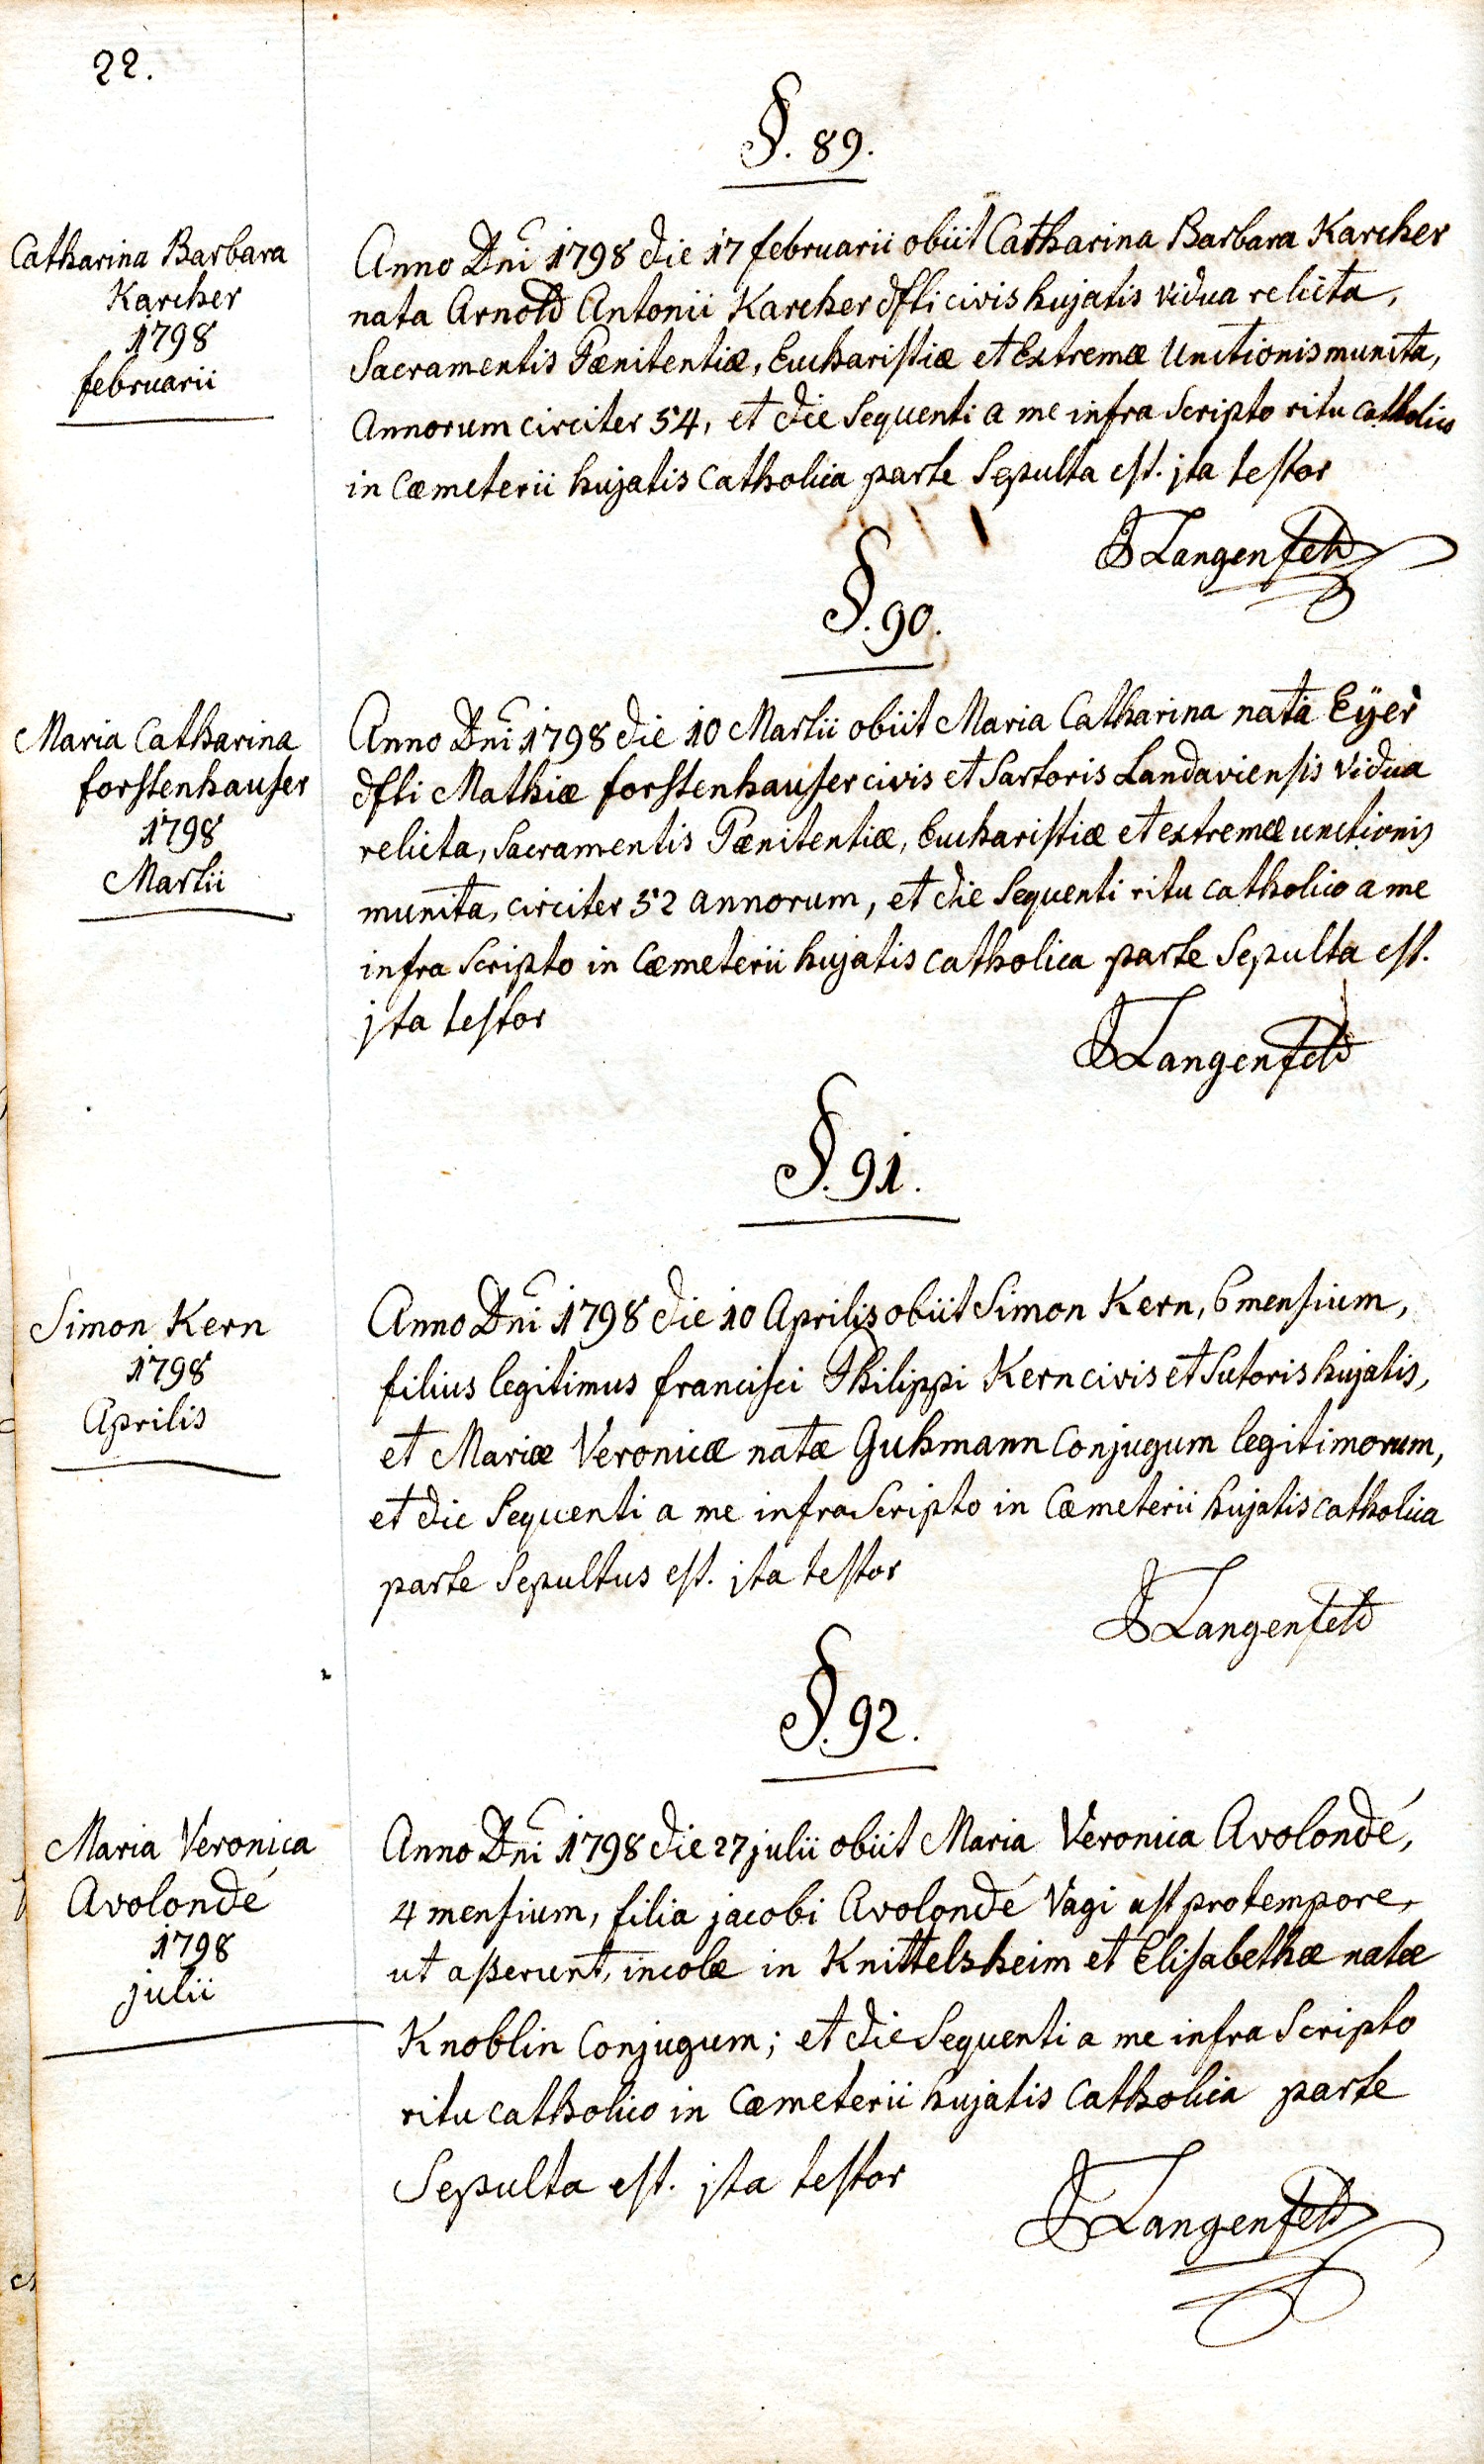 22.
§. 89.
Catharina Barbara
Karcher
1798
februarii
Anno Dni 1798 die 17 februarii obiit Catharina Barbara Karcher
nata Arnold Antonii Karcher dfti civis hujatis vidua relicta,
Sacramentis Pænitentiæ, Eucharistiæ et Extremæ Unctionis munita,
Annorum circiter 54, et die sequenti a me infra scripto ritu catholico
in Cæmeterii hujatis catholica parte Sepulta est. jta testor
J Langenfeld
§. 90.
Maria Catharina
forstenhauser
1798
Martii
Anno Dni 1798 die 10 Martii obiit Maria Catharina nata Eÿer
dfti Mathiæ forstenhauser civis et Sartoris Landaviensis vidua
relicta, Sacramentis Pænitentiæ, Eucharistiæ et extremæ unctionis
munita, circiter 52 annorum, et die sequenti ritu catholico a me
infra scripto in Cæmeterii hujatis catholica parte Sepulta est.
jta testor
J Langenfeld
§. 91.
Simon Kern
1798
Aprilis
Anno Dni 1798 die 10 Aprilis obiit Simon Kern, 6 mensium,
filius legitimus francisci Philippi Kern civis et Sutoris hujatis,
et Mariæ Veronicæ natæ Guhmann Conjugum legitimorum,
et die sequenti a me infra scripto in Cæmeterii hujatis catholica
parte Sepultus est. jta testor
J Langenfeld
§. 92.
Maria Veronica
Avolondé
1798
julii
Anno Dni 1798 die 27 julii obiit Maria Veronica Avolondé,
4 mensium, filia jacobi Avolondé Vagi ast pro tempore,
ut asserunt, incolæ in Knittelsheim et Elisabethæ natæ
Knoblin Conjugum; et die sequenti a me infra scripto
ritu catholico in Cæmeterii hujatis catholica parte
Sepulta est. jta testor
J Langenfeld